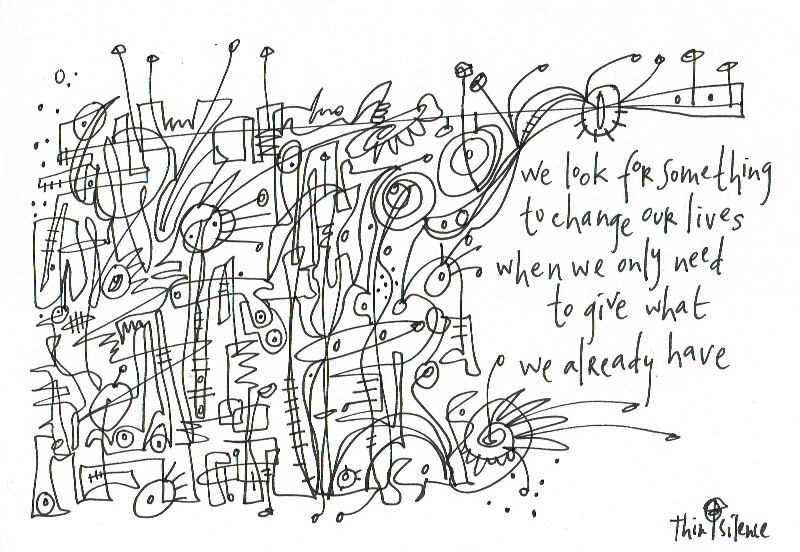 we look for something
to change our lives
when we only need
to give what
we already have
thin silence